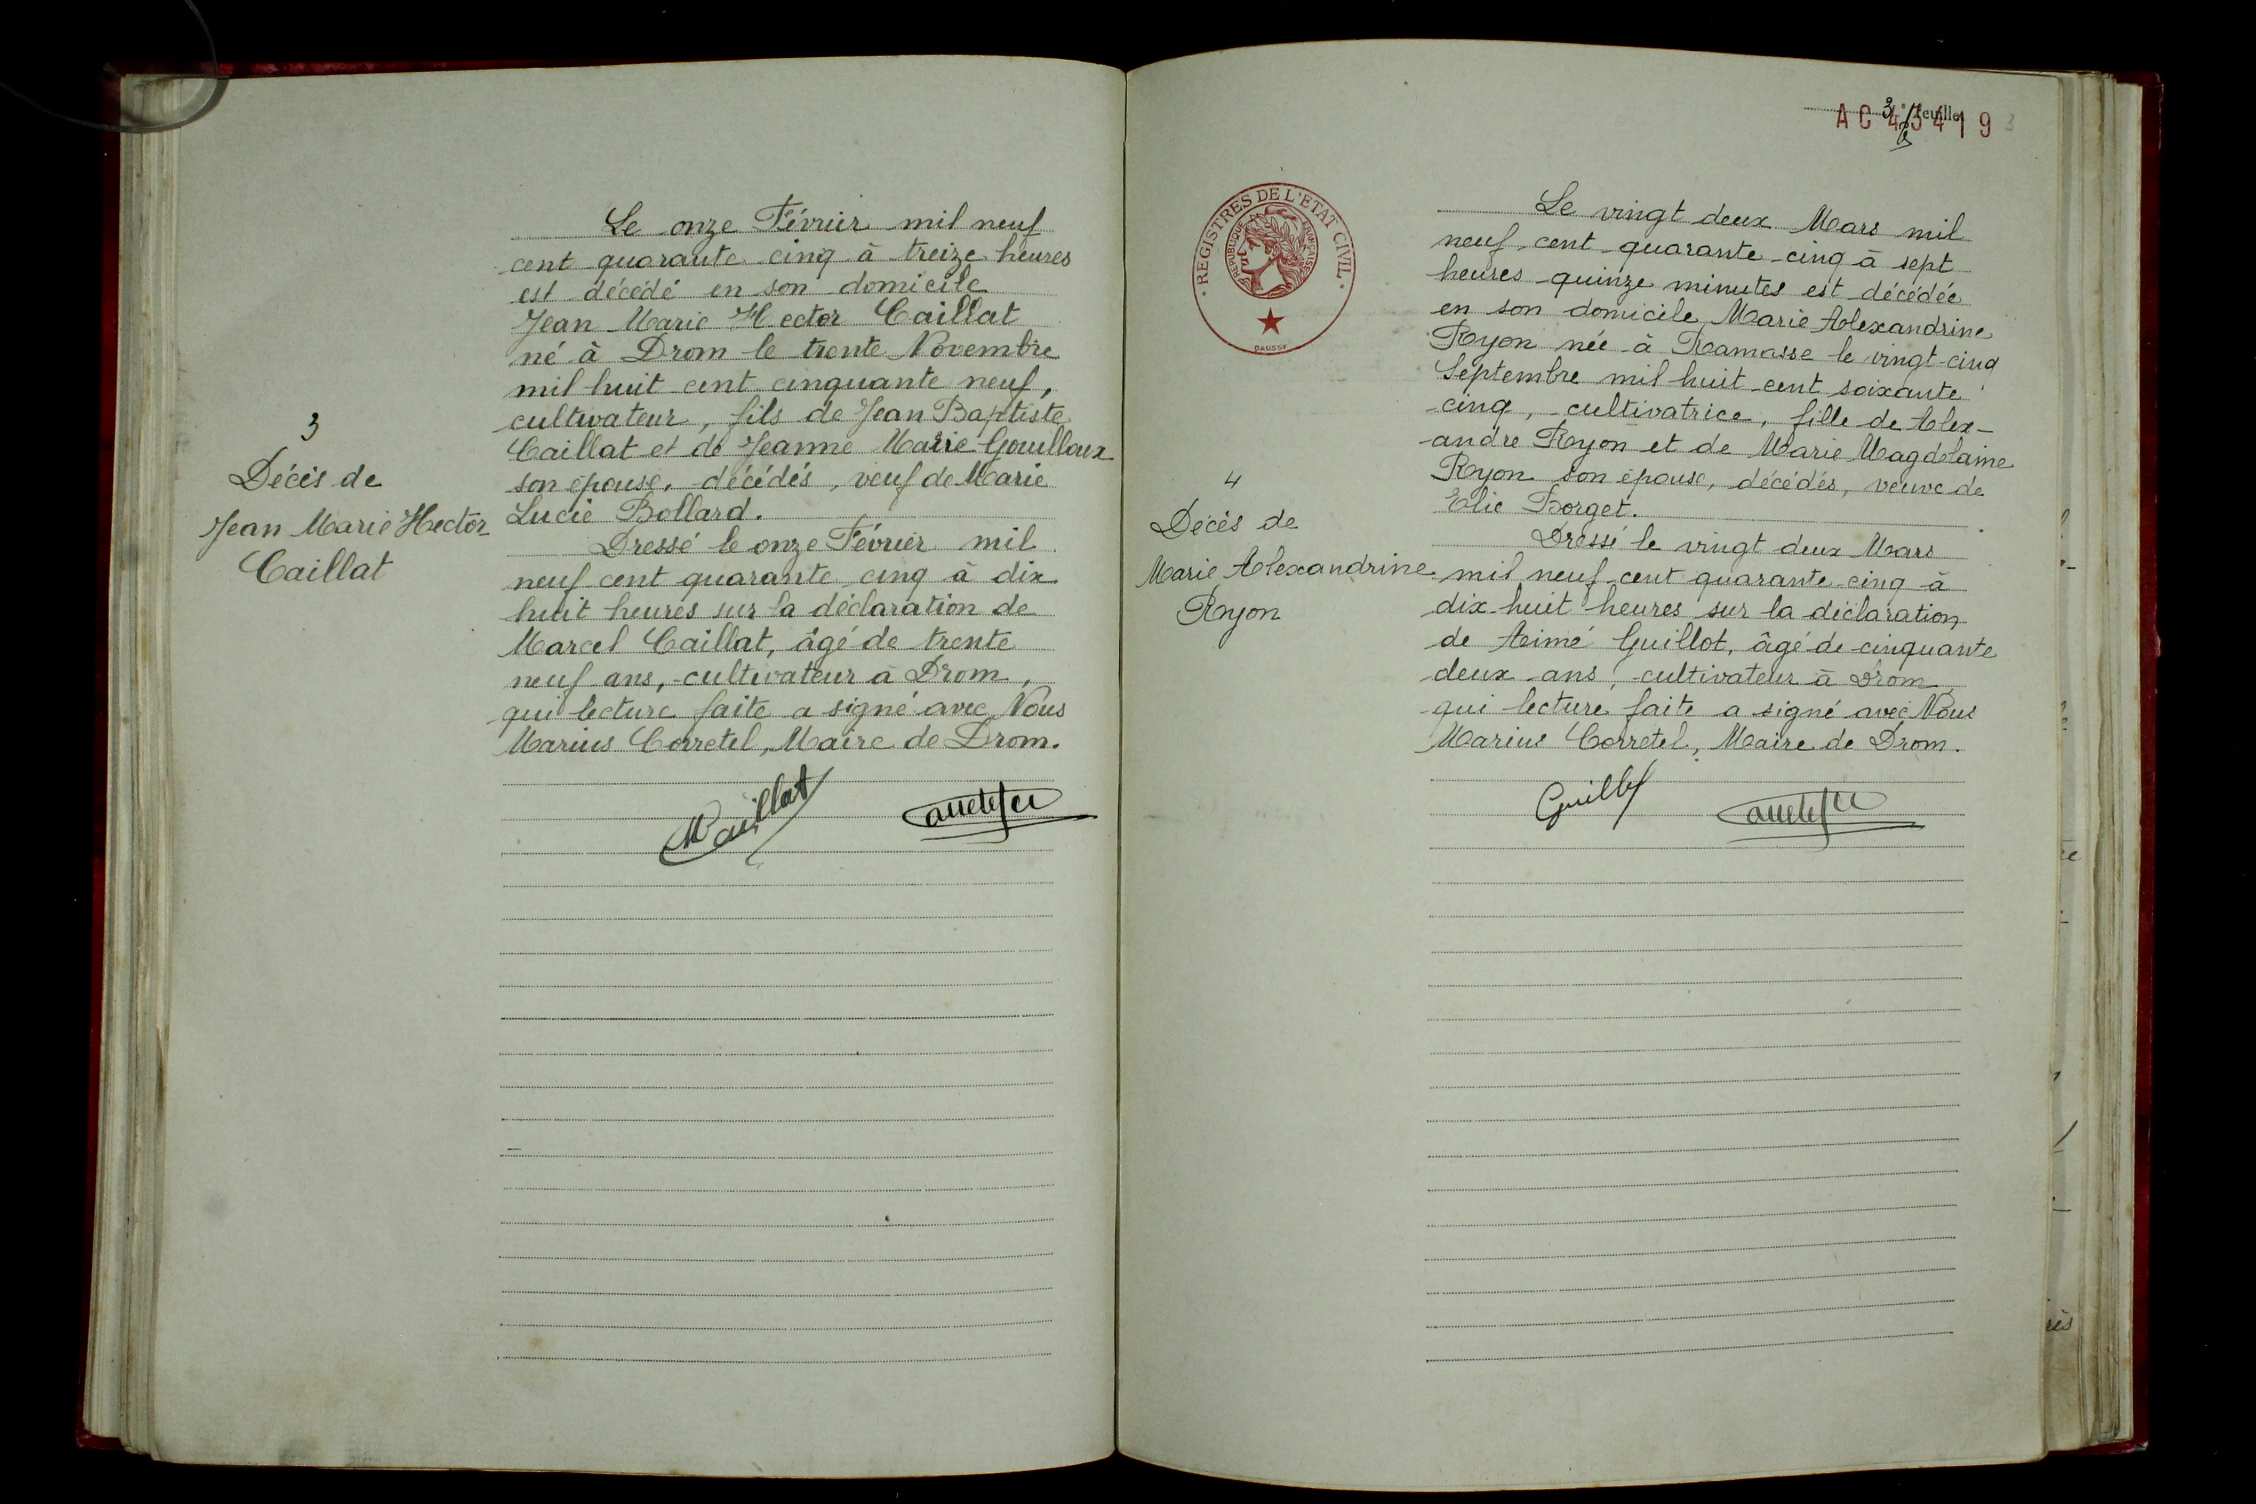 Le onze Février mil neuf
cent quarante cinq à treize heures
est décédé en son domicile
Jean Marie Hector Caillat
né à Drom le trente Novembre
mil huit cent cinquante neuf,
cultivateur, fils de Jean Baptiste
Caillat et de Jeanne Marie Gouilloux
son épouse, décédés, veuf de Marie
Lucie Bollard.
Dressé le onze Février mil
neuf cent quarante cinq à dix
huit heures sur la déclaration de
Marcel Caillat, âgé de trente
neuf ans, cultivateur à Drom,
qui lecture faite a signé avec Nous
Marius Corretel, Maire de Drom.
3
Décès de
Jean Marie Hector
Caillat
MCaillat
3e feuille
AC 45419
REGISTRES DE L'ETAT CIVIL
REPUBLIQUE FRANÇAISE
DAUSSY
Le vingt deux Mars mil
neuf cent quarante cinq à sept
heures quinze minutes est décédée
en son domicile Marie Alexandrine
Ryon née à Ramasse le vingt-cinq
Septembre mil huit cent soixante
cinq, cultivatrice, fille de Alex-
andre Ryon et de Marie Magdelaine
Ryon son épouse, décédés, veuve de
Elie Borget.
Dressé le vingt deux Mars
mil neuf cent quarante cinq à
dix huit heures sur la déclaration
de Aimé Guillot, âgé de cinquante
deux ans, cultivateur à Drom,
qui lecture faite a signé avec Nous
Marius Corretel, Maire de Drom.
4
Décès de
Marie Alexandrine
Ryon
Guillot